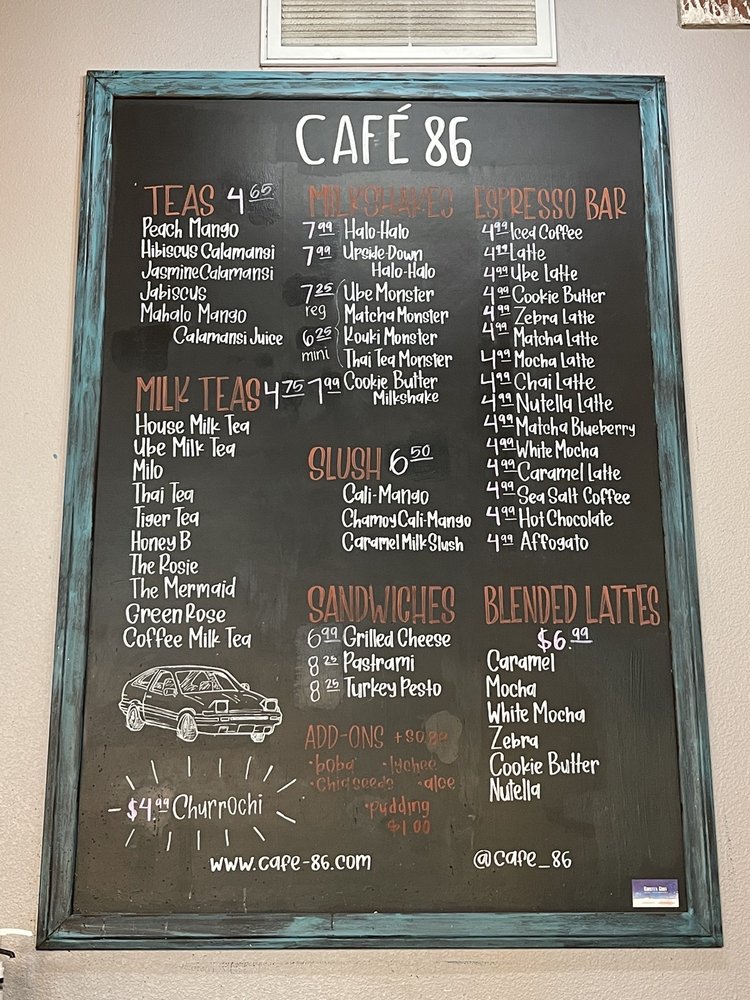 CAFÉ 86
TEAS 4 65
Peach Mango
Hibiscus Calamansi
Jasmine Calamansi
Jabiscus
Mahalo Mango
Calamansi Juice
MILK TEAS 4 75
House Milk Tea
Ube Milk Tea
Milo
Thai Tea
Tiger Tea
Honey B
The Rosie
The Mermaid
Green Rose
Coffee Milk Tea
$4.99 Churrochi
MILKSHAKES
7 99 Halo-Halo
7 99 Upside-Down
Halo-Halo
7 25 Ube Monster
reg Matcha Monster
6 25 Kouki Monster
mini Thai Tea Monster
7 99 Cookie Butter
Milkshake
SLUSH 6 50
Cali-Mango
Chamoy Cali-Mango
Caramel Milk Slush
SANDWICHES
6 99 Grilled Cheese
8 25 Pastrami
8 25 Turkey Pesto
ADD-ONS
•boba •lychee
•Chia seeds •aloe
•pudding
$1.00
ESPRESSO BAR
4 99 Iced Coffee
4 99 Latte
4 99 Ube Latte
4 99 Cookie Butter
4 99 Zebra Latte
4 99 Matcha Latte
4 99 Mocha Latte
4 99 Chai Latte
4 99 Nutella Latte
4 99 Matcha Blueberry
4 99 White Mocha
4 99 Caramel Latte
4 99 Sea Salt Coffee
4 99 Hot Chocolate
4 99 Affogato
BLENDED LATTES
$6.99
Caramel
Mocha
White Mocha
Zebra
Cookie Butter
Nutella
www.cafe-86.com
@cafe_86